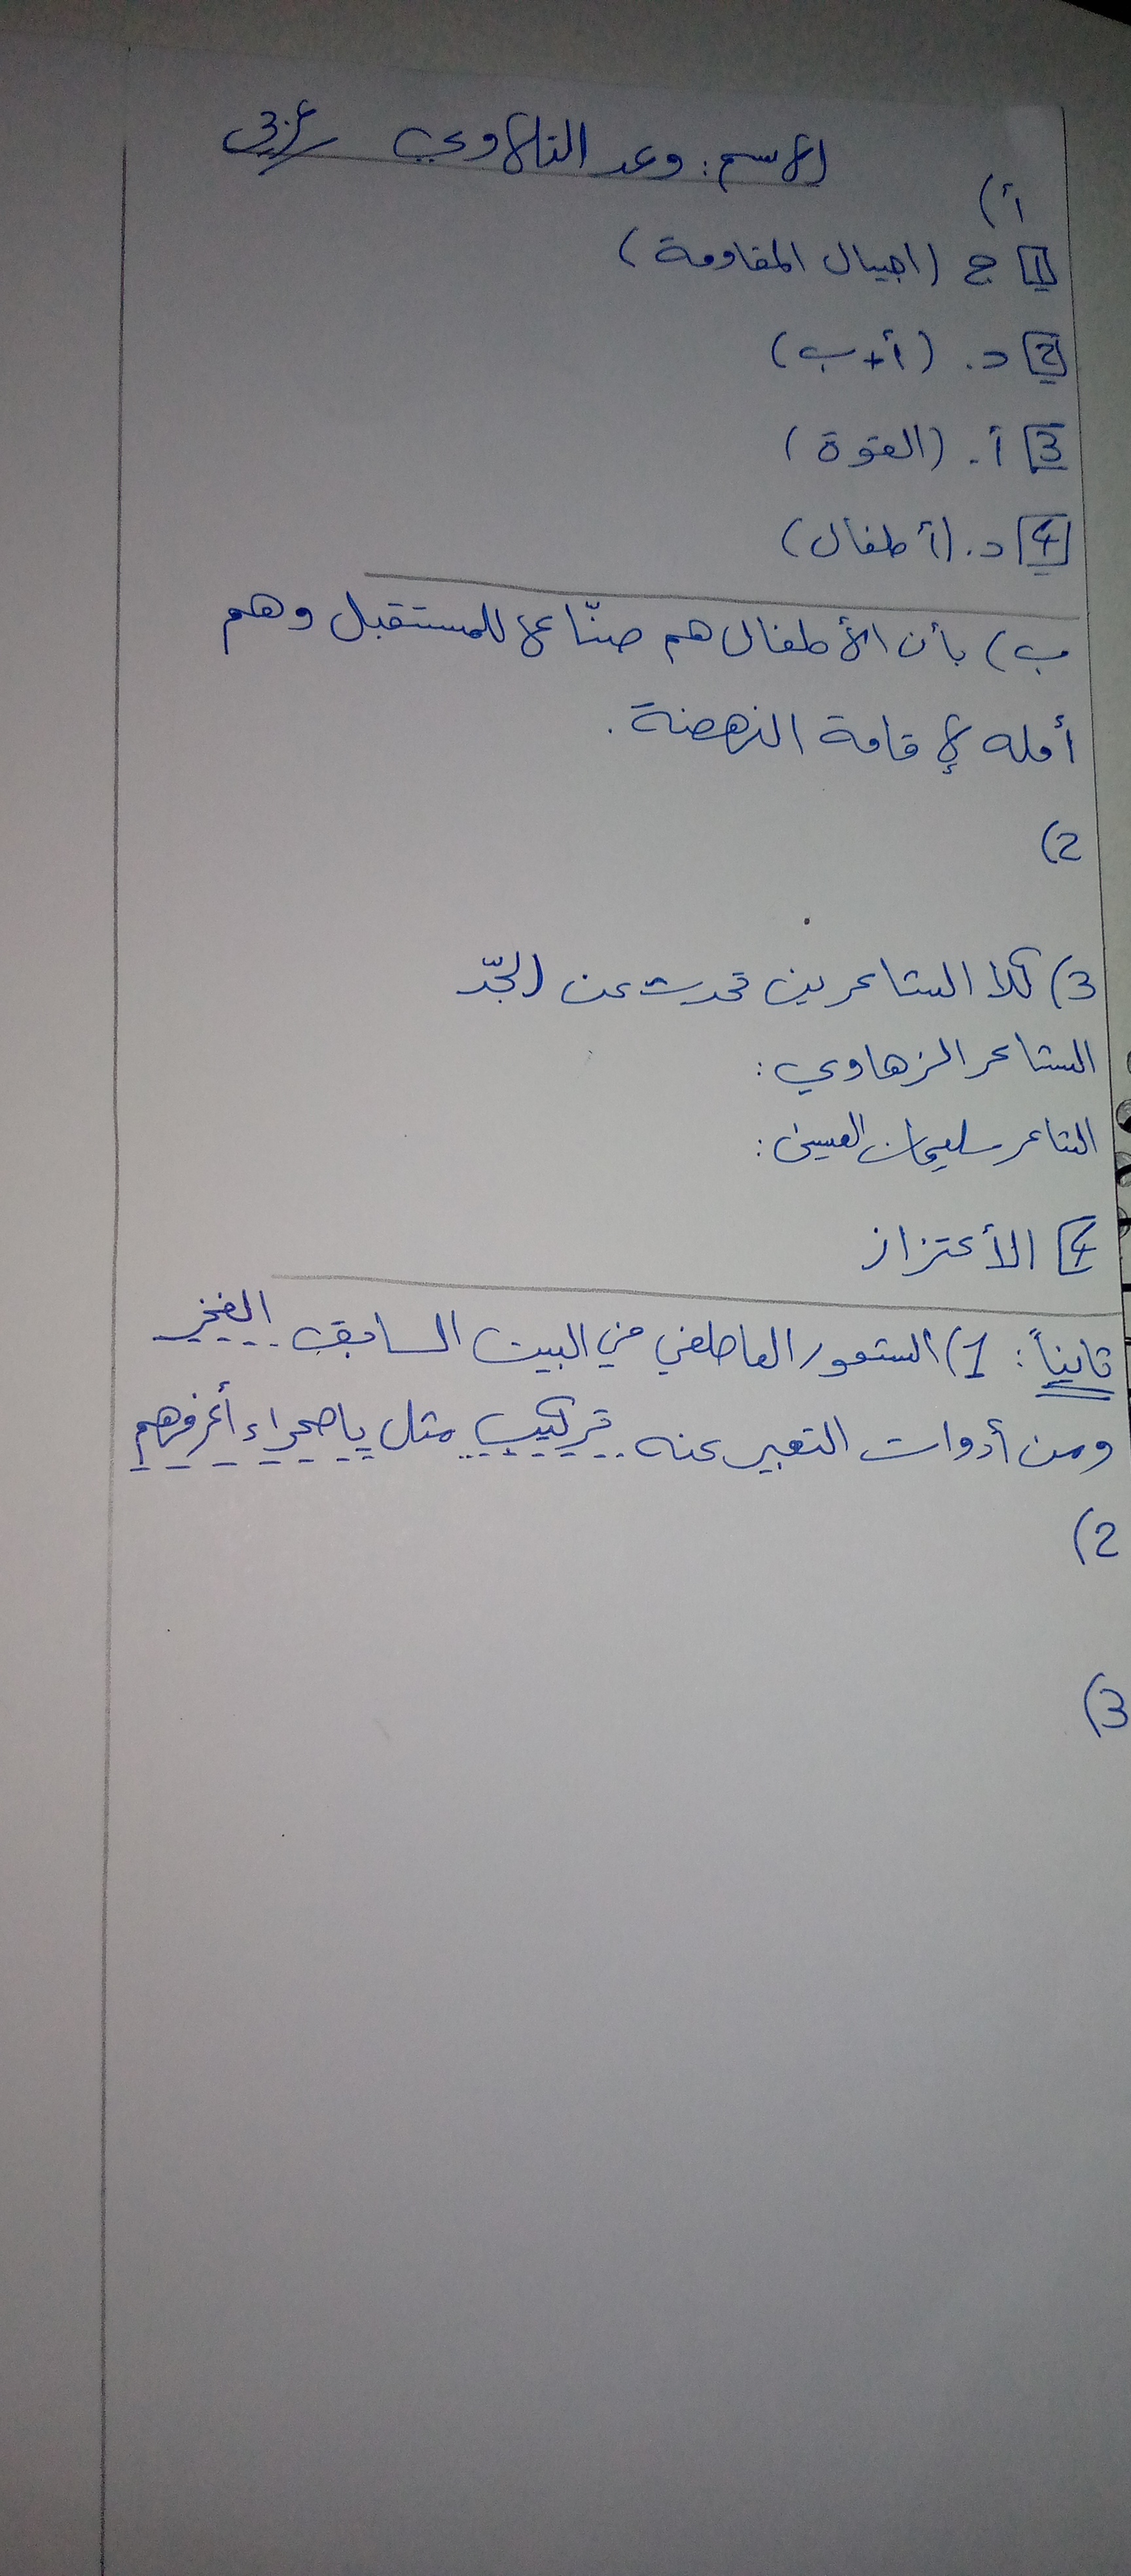 الاسم: وعد التلاوي
أ)
1 ج (اجيال المقاومة)
2 د. (أ+ب)
3 أ. (القوة)
4 د. (أطفال)
ب) بأن الأطفال هم صنّاع للمستقبل وهم
أمله لإقامة النهضة.
2)
3) كلا الشاعرين تحدث عن الجدّ
الشاعر الزهاوي:
الشاعر سليمان العيسى:
4 الأعتزاز
ثانياً: 1) الشعور العاطفي في البيت السابق الفخر
ومن أدوات التعبير عنه تركيب مثل يا صحراء أعرفهم
2)
3)